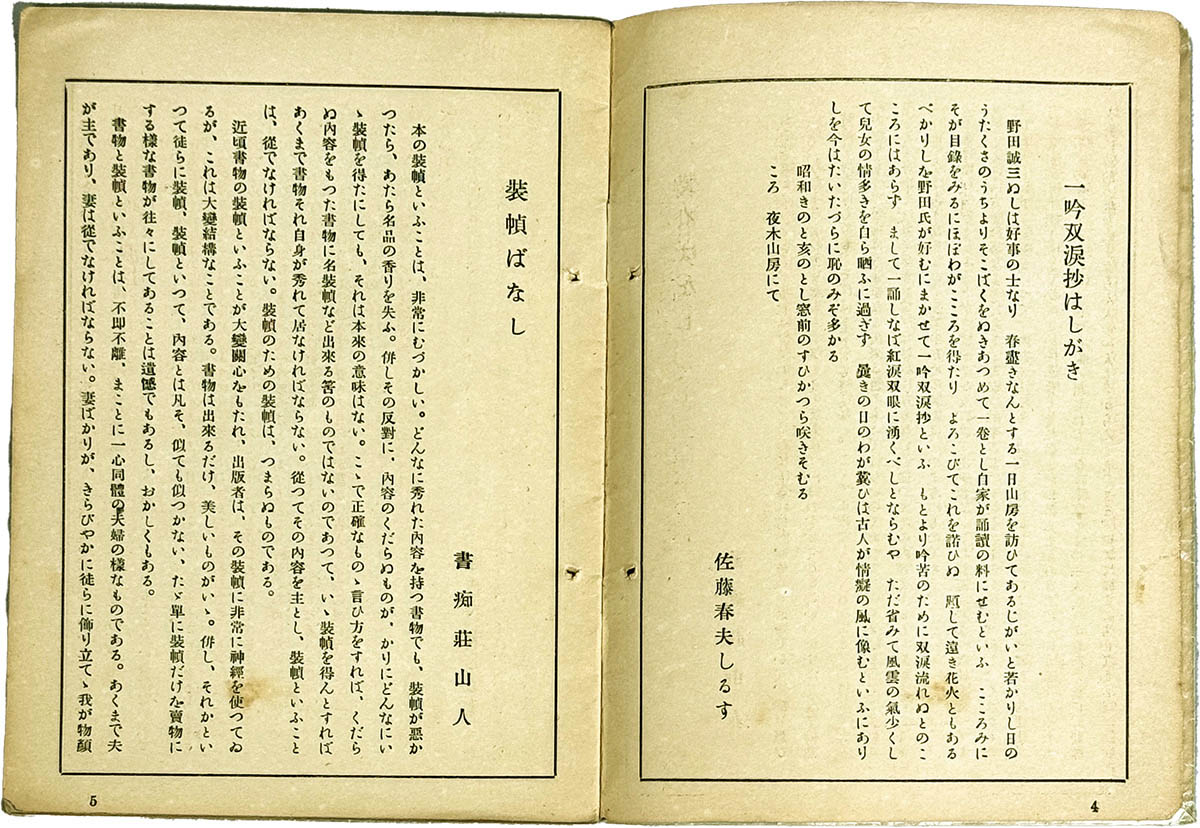 一吟双涙抄はしがき
野田誠三ぬしは好事の士なり　春盡きなんとする一日山房を訪ひてあるじがいと若かりし日の
うたくさのうちよりそこばくをぬきあつめて一卷とし自家が誦讀の料にせむといふ　こころみに
そが目錄をみるにほぼわがこころを得たり　よろこびてこれを諾ひぬ　題して遠き花火ともある
べかりしを野田氏が好むにまかせて一吟双涙抄といふ　もとより吟苦のために双涙流れぬとのこ
ころにはあらず　まして一誦しなば紅涙双眼に湧くべしとならむや　ただ省みて風雲の氣少くし
て兒女の情多きを自ら晒ふに過ぎず　曩きの日のわが冀ひは古人が情癡の風に像むといふにあり
しを今はたいたづらに恥のみぞ多かる
昭和きのと亥のとし窓前のすひかつら咲きそむる
ころ　夜木山房にて
佐藤春夫しるす
4
裝幀ばなし
書痴莊山人
本の裝幀といふことは、非常にむづかしい。どんなに秀れた內容を持つ書物でも、裝幀が惡か
つたら、あたら名品の香りを失ふ。併しその反對に、內容のくだらぬものが、かりにどんなにい
ゝ裝幀を得たにしても、それは本來の意味はない。こゝで正確なものゝ言ひ方をすれば、くだら
ぬ內容をもつた書物に名裝幀など出來る筈のものではないのであつて、いゝ裝幀を得んとすれば
あくまで書物それ自身が秀れて居なければならない。從つてその內容を主とし、裝幀といふこと
は、從でなければならない。裝幀のための裝幀は、つまらぬものである。
近頃書物の裝幀といふことが大變關心をもたれ、出版者は、その裝幀に非常に神經を使つてゐ
るが、これは大變結構なことである。書物は出來るだけ、美しいものがいゝ。併し、それかとい
つて徒らに裝幀、裝幀といつて、內容とは凡そ、似ても似つかない、たゞ單に裝幀だけを賣物に
する樣な書物が往々にしてあることは遺憾でもあるし、おかしくもある。
書物と裝幀といふことは、不卽不離、まことに一心同體の夫婦の樣なものである。あくまで夫
が主であり、妻は從でなければならない。妻ばかりが、きらびやかに徒らに飾り立てゝ我が物顏
5